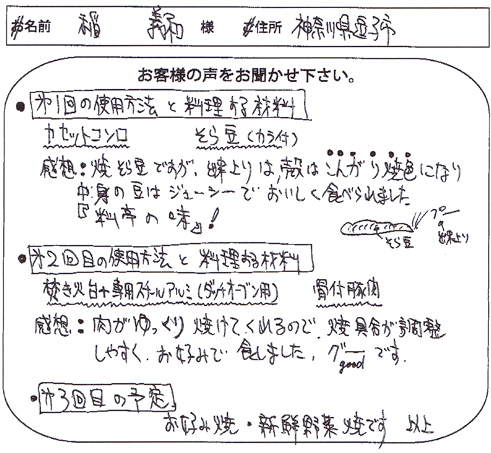 お名前 稲 義和 様 お住所 神奈川県逗子市
お客様の声をお聞かせ下さい。
・第1回の使用方法と料理する材料
カセットコンロ そら豆(カラ付)
感想:焼そら豆ですが、出来上りは、殻はこんがり焼色になり
中身の豆はジューシーでおいしく食べられました
『料亭の味』!
そら豆 出来上り
・第2回目の使用方法と料理する材料
焚き火台+専用スチールアルミ(ダッチオーブン用) 骨付豚肉
感想:肉がゆっくり焼けてくれるので、焼具合が調整
しやすく、お好みで食しました。グーです。
good
・第3回目の予定
お好み焼・新鮮野菜焼です 以上